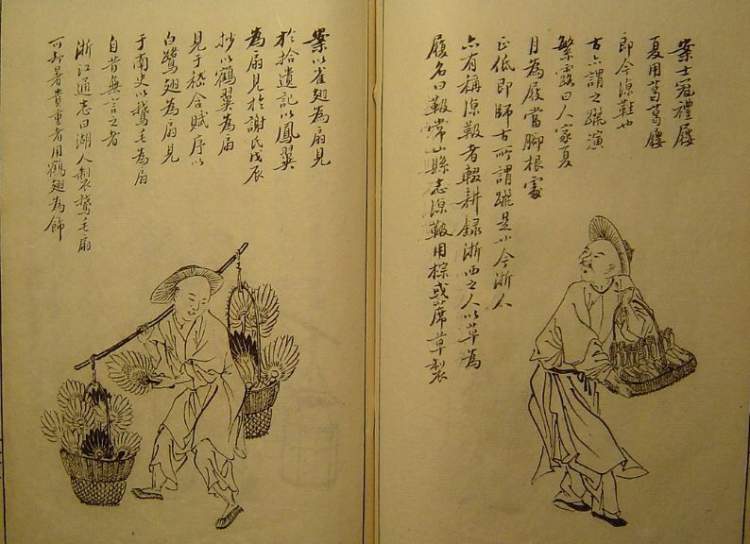 案士冠禮屨
夏用葛葛屨
即今涼鞋也
古亦謂之躧演
繁露曰人家夏
月為屐當腳根處
正低即師古所謂躧是也今浙人
亦有稱涼靸者輟耕録浙西之人以草為
履名曰靸常山縣志涼靸用棕或蓆草製
案以雀翅為扇見
於拾遺記以鳳翼
為扇見於謝氏戊辰
抄以鶴翼為扇
見于嵇含賦序以
白鷺翅為扇見
于南史以鵝毛為扇
自昔無言之者
浙江通志曰湖人製鵞毛扇
可却暑貴重者用鶴翅為飾